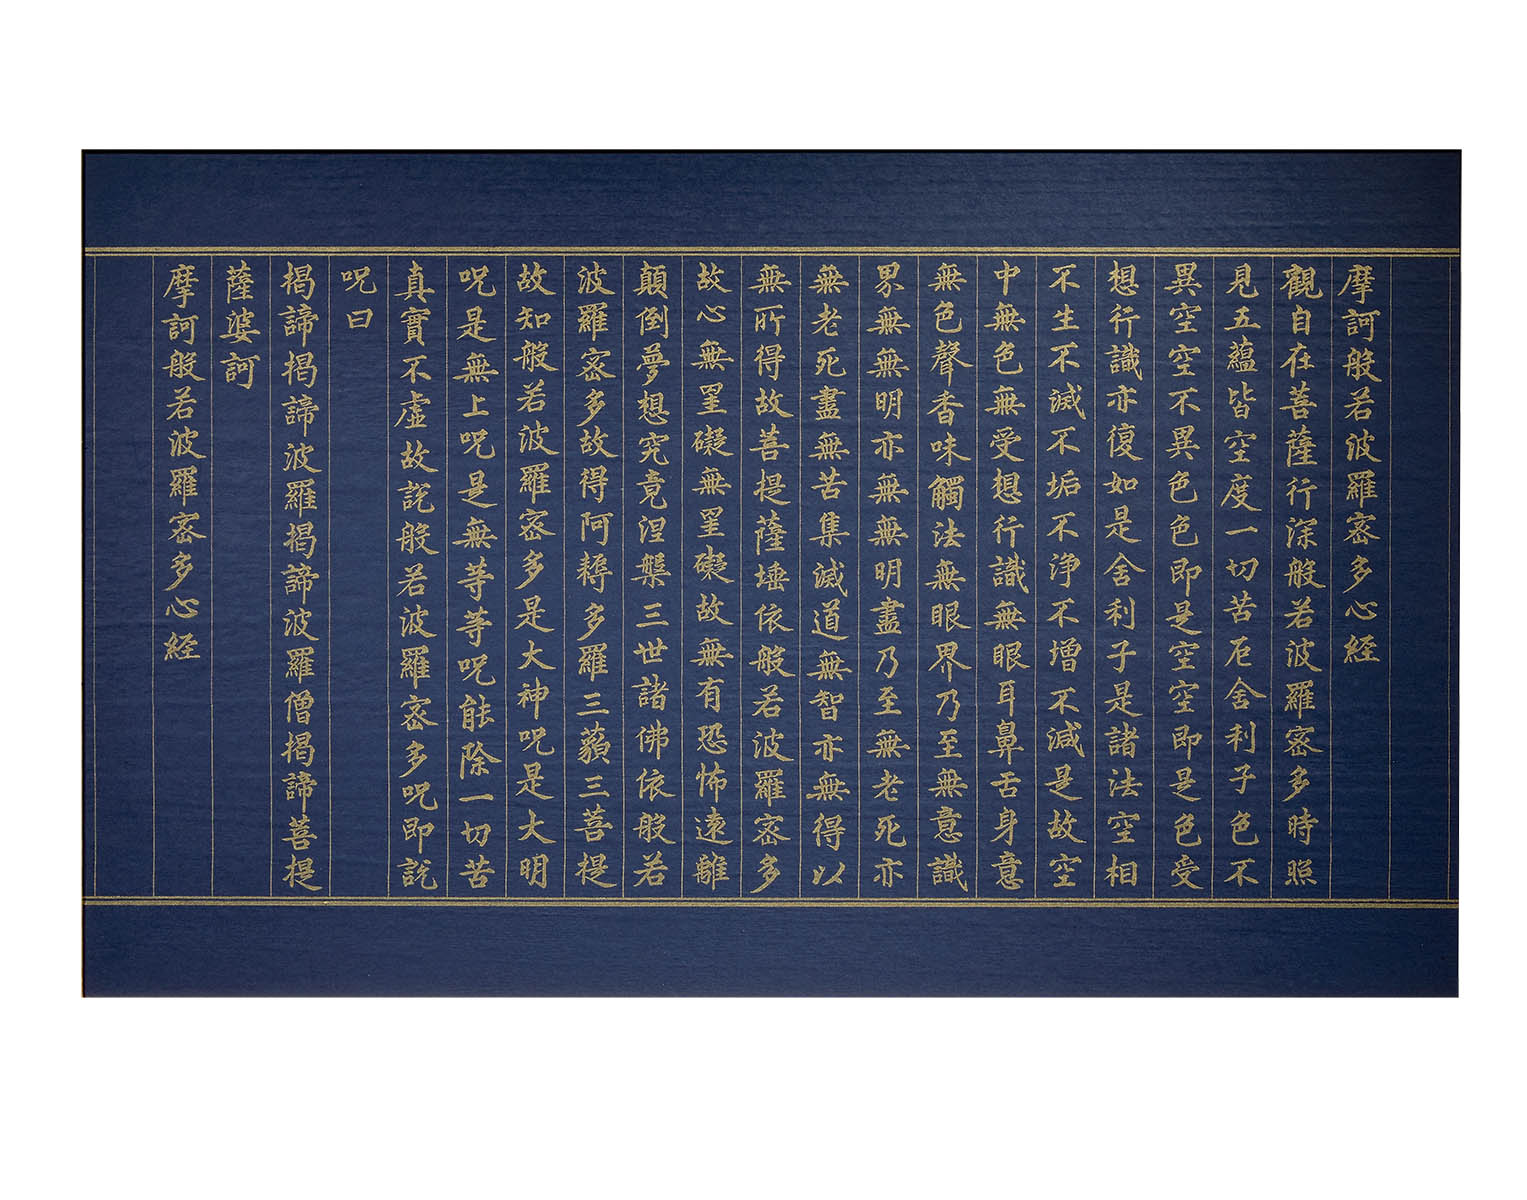 摩訶般若波羅宻多心経
觀自在菩薩行深般若波羅宻多時照
見五蘊皆空度一切苦厄舍利子色不
異空空不異色色即是空空即是色受
想行識亦復如是舍利子是諸法空相
不生不滅不垢不浄不增不減是故空
中無色無受想行識無眼耳鼻舌身意
無色聲香味觸法無眼界乃至無意識
界無無明亦無無明盡乃至無老死亦
無老死盡無苦集滅道無智亦無得以
無所得故菩提薩埵依般若波羅宻多
故心無罣礙無罣礙故無有恐怖遠離
顛倒夢想究竟涅槃三世諸佛依般若
波羅宻多故得阿耨多羅三藐三菩提
故知般若波羅宻多是大神呪是大明
呪是無上呪是無等等呪能除一切苦
真實不虚故説般若波羅宻多呪即説
呪曰
揭諦揭諦波羅揭諦波羅僧揭諦菩提
薩婆訶
摩訶般若波羅宻多心経